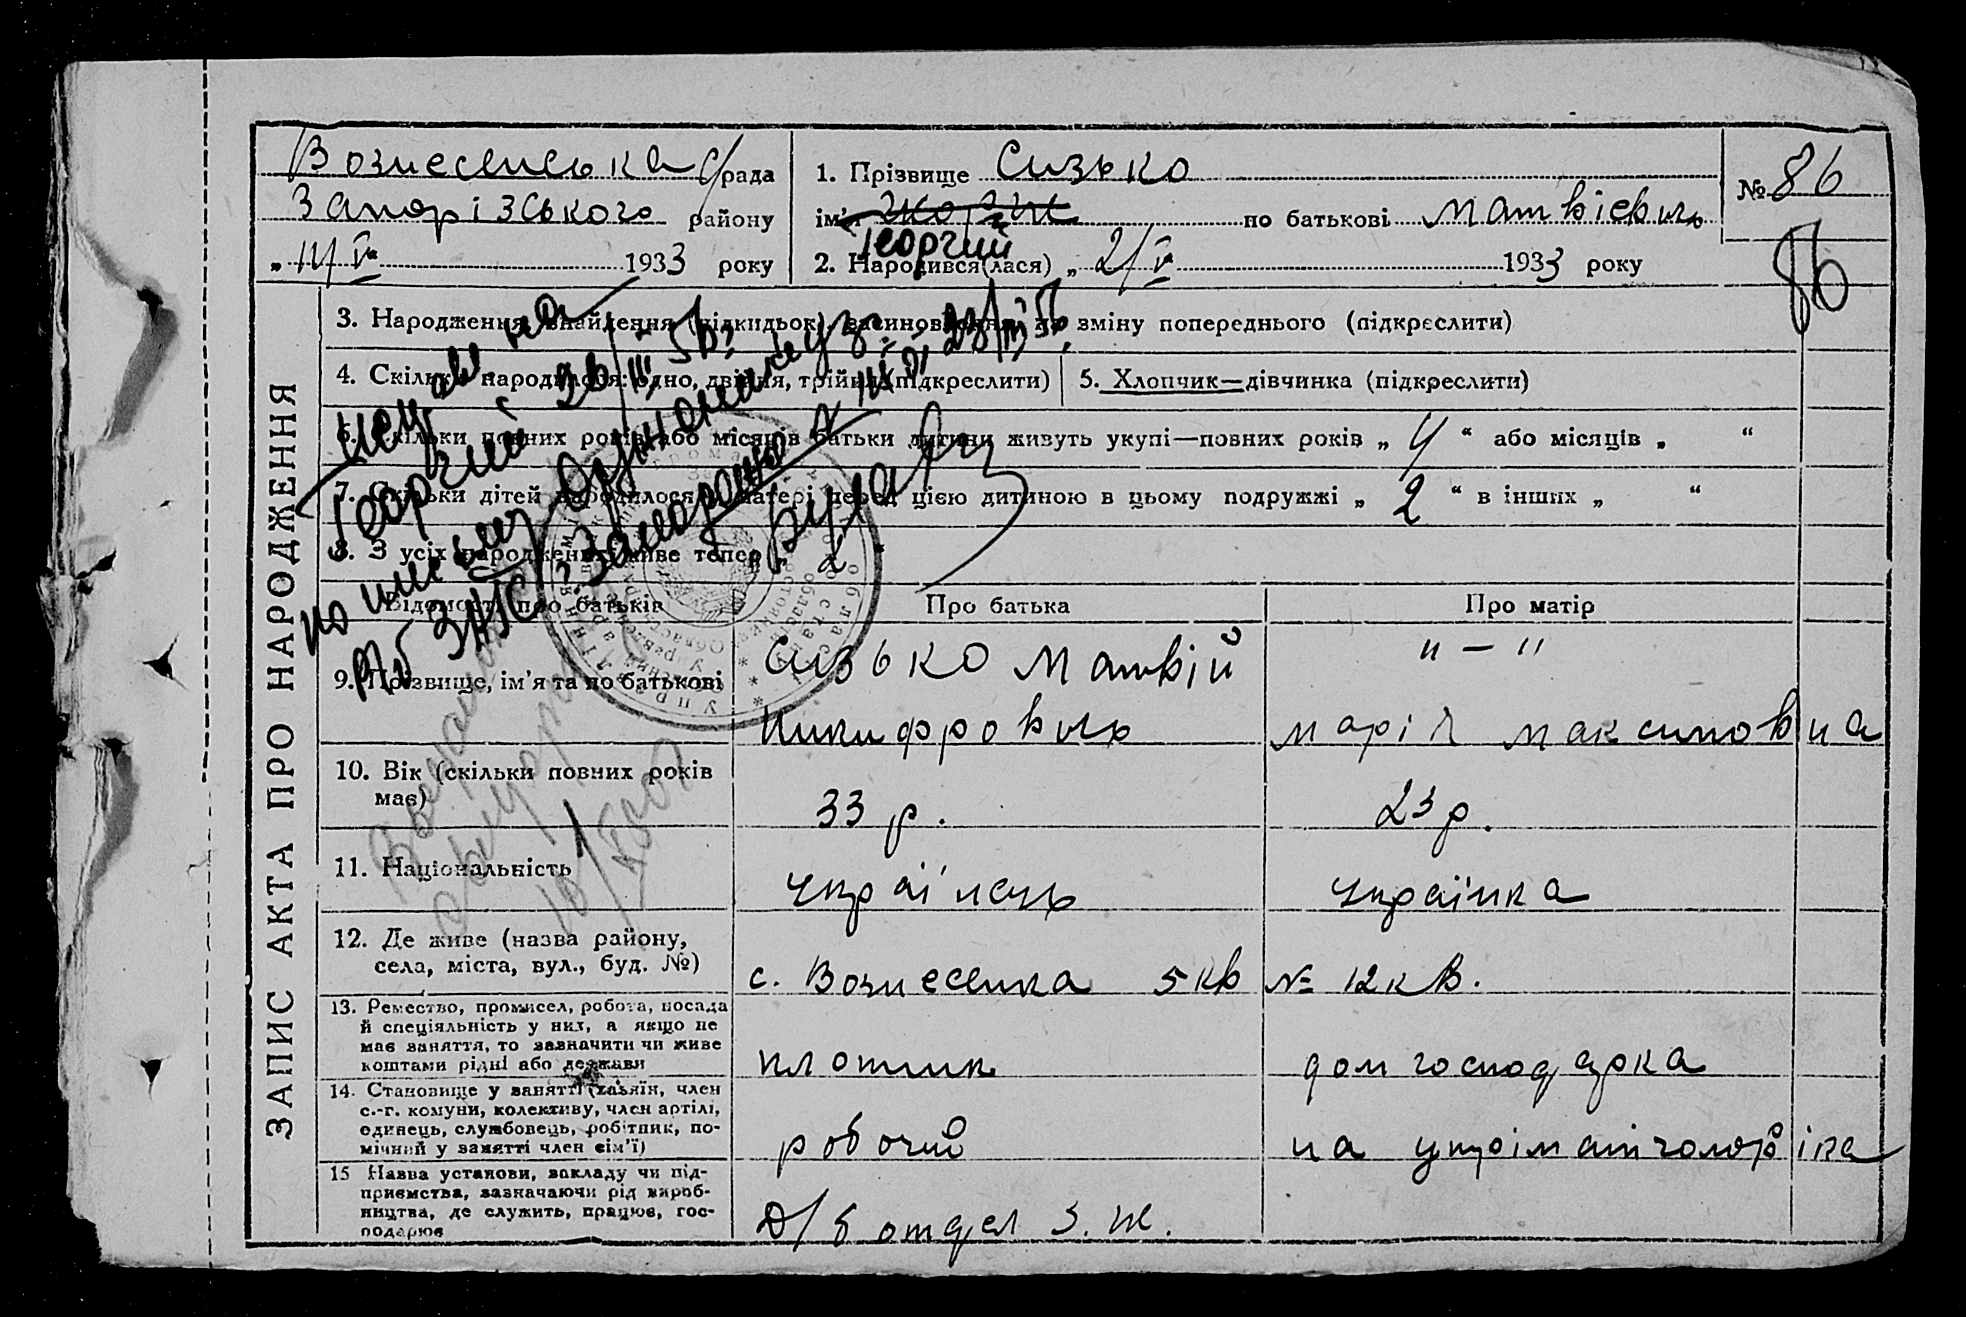 Вознесенська с/рада
Запорізського району
„ 11/V 1933 року
1. Прізвище Сизько
ім'я Жоржик по батькові Матвієвич
Георгий
2. Народився(лася) „ 2/V 1933 року
№ 86
86
ЗАПИС АКТА ПРО НАРОДЖЕННЯ
3. Народження, знайдення (підкидьок), всиновлення, зміну попереднього (підкреслити)
4. Скільки народилося: одно, двійня, трійня (підкреслити)
5. Хлопчик—дівчинка (підкреслити)
6. Скільки повних років або місяців батьки дитини живуть укупі—повних років „ 4 “ або місяців „ “
7. Скільки дітей народилося у матері перед цією дитиною в цьому подружжі „ 2 “ в інших „ “
8. З усіх народжених живе тепер „ 2 “
Георгий
ЗАГС Запорожье
Відомості про батьків
Про батька
Про матір
9. Прізвище, ім'я та по батькові
Сизько Матвій
Никифрович
" — "
Марія Максимовна
10. Вік (скільки повних років має)
33 р.
23 р.
11. Національність
українець
українка
12. Де живе (назва району, села, міста, вул., буд. №)
с. Вознесенка 5 кв № 12 кв.
13. Ремество, промисел, робота, посада
й спеціяльність у них, а якщо не
має заняття, то зазначити чи живе
коштами рідні або держави
плотник
дом господарка
14. Становище у занятті (хазяїн, член
с.-г. комуни, колективу, член артілі,
одинець, службовець, робітник, по-
мічний у занятті член сім'ї)
робочий
на утрімані чоловіка
15 Назва установи, закладу чи під-
приємства, зазначаючи рід вироб-
ництва, де служить, працює, гос-
подарює
Д/б отдел З. Ж.